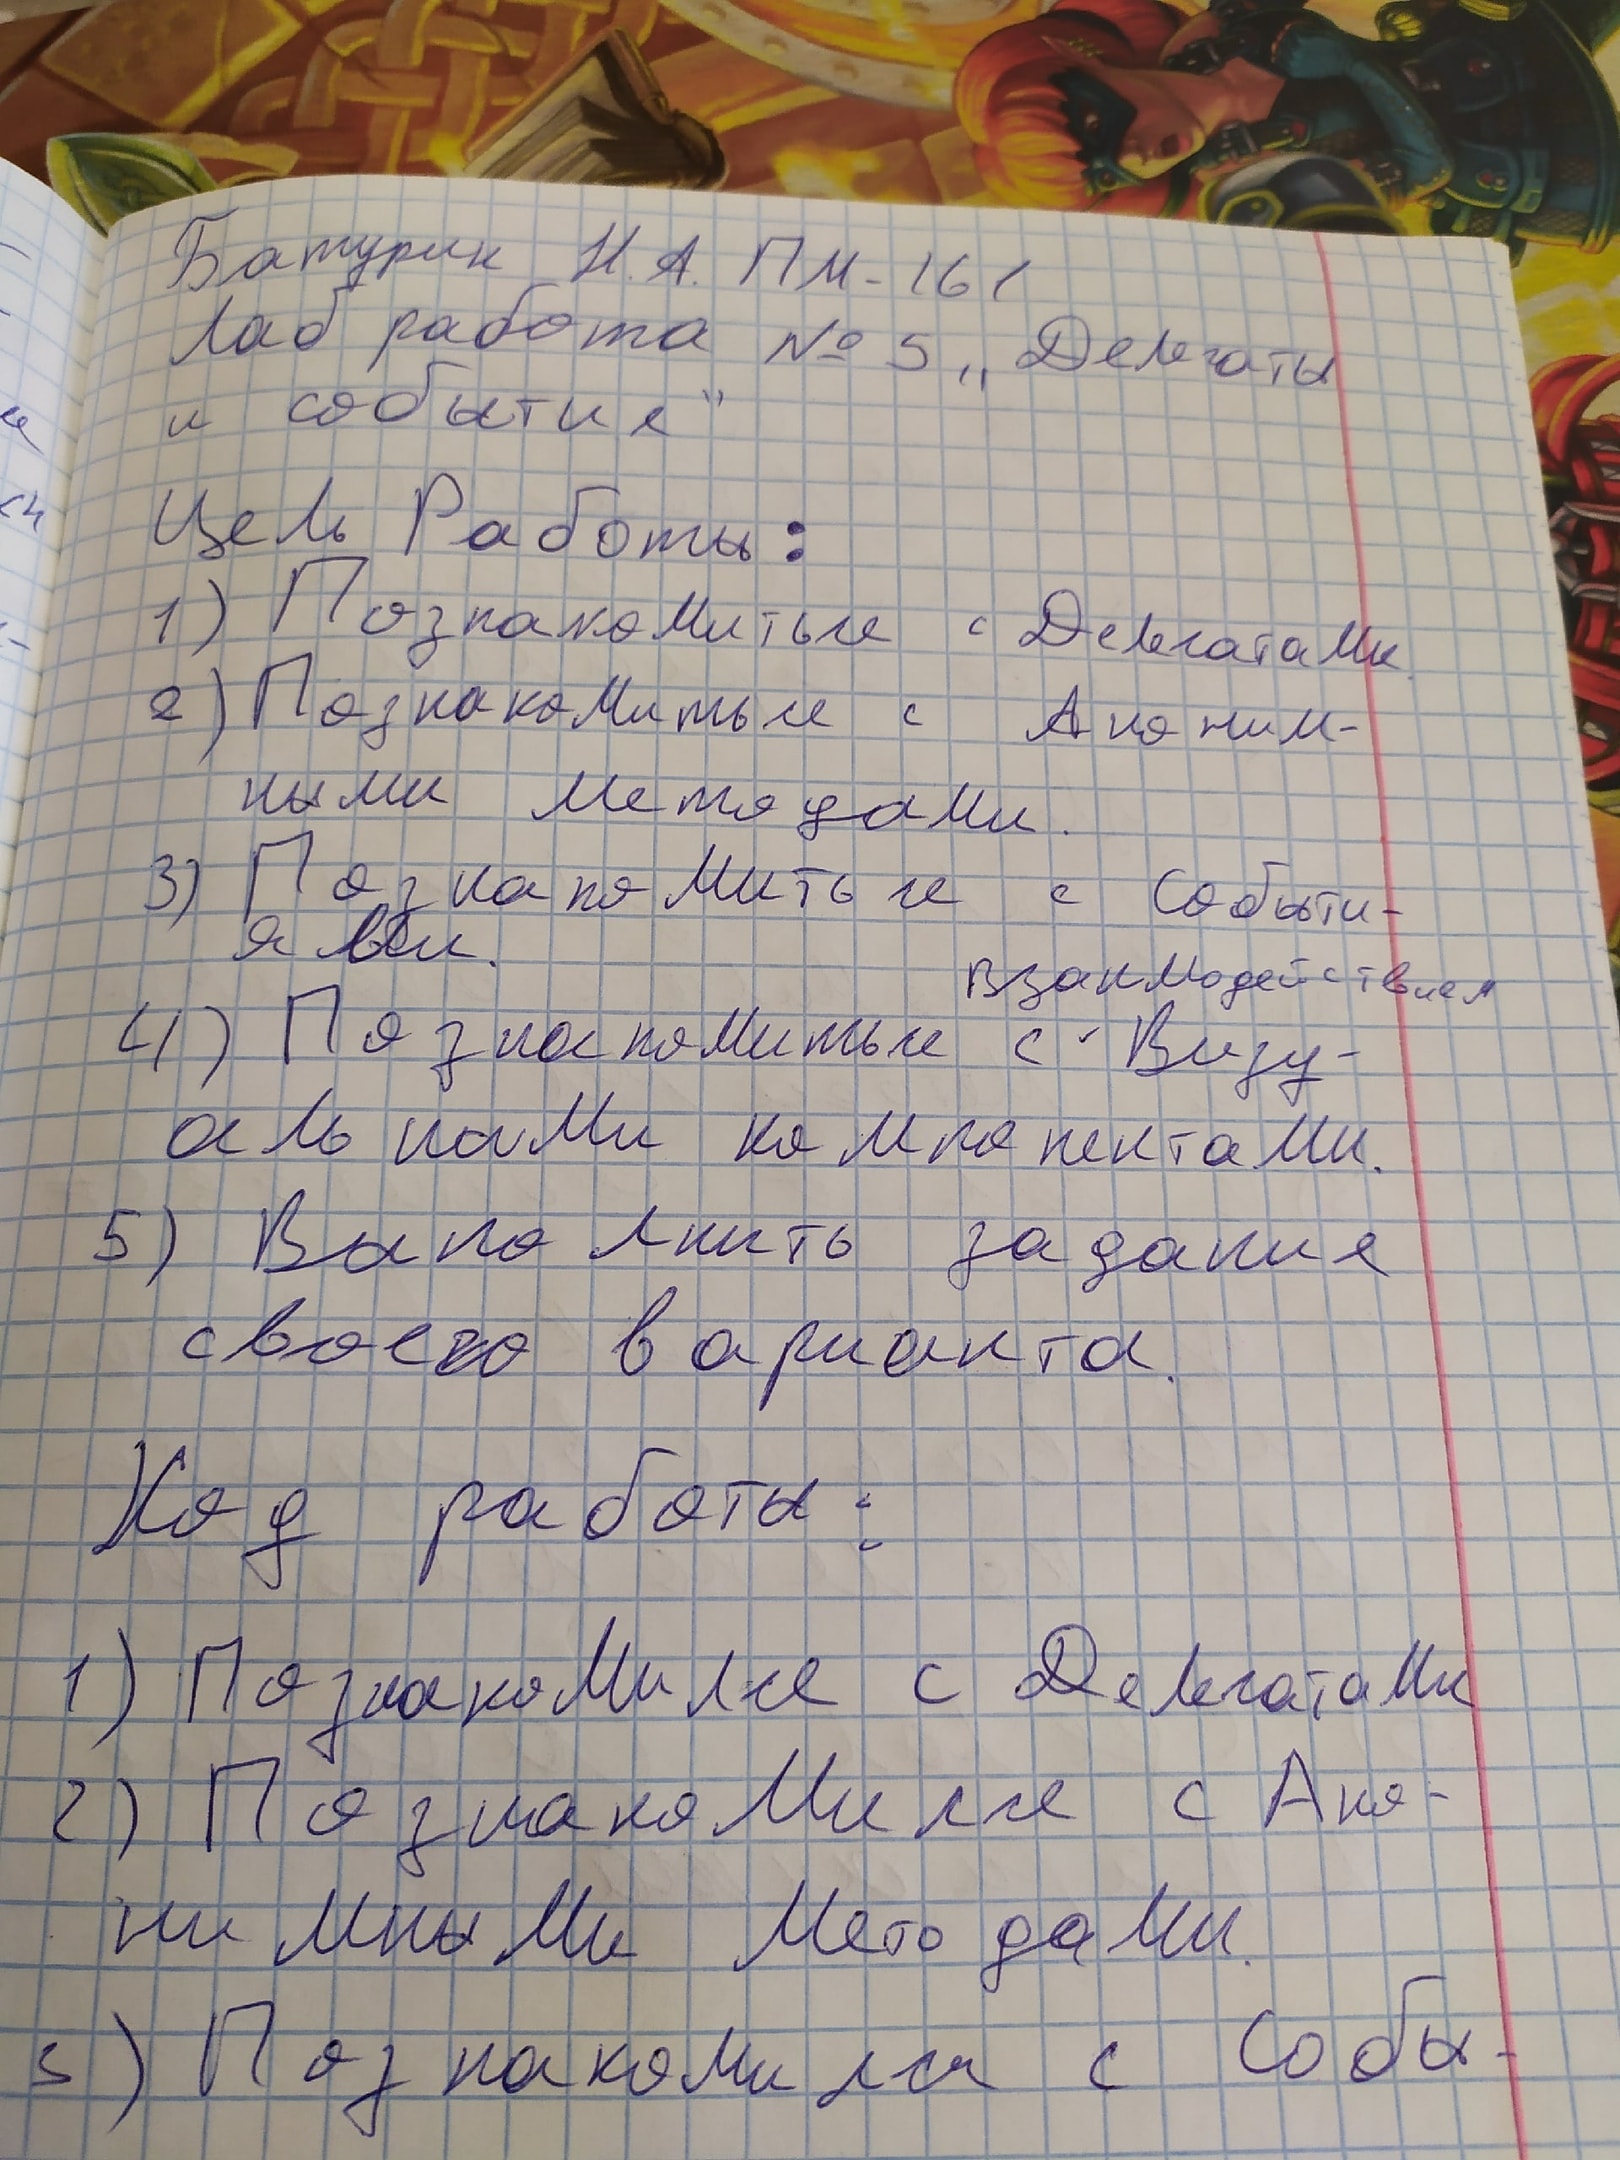 Батурин Н.А. ПМ-161
Лаб работа № 5 „Делегаты
и события"
Цель Работы:
1) Познакомиться с Делегатами.
2) Познакомиться с Аноним-
ными методами.
3) Познакомиться с Событи-
ями.
взаимодействием
4) Познакомиться с Визу-
альными компонентами.
5) Выполнить задания
своего варианта.
Ход работы:
1) Познакомился с Делегатами
2) Познакомился с Ано-
нимными Методами.
3) Познакомился с Собы-